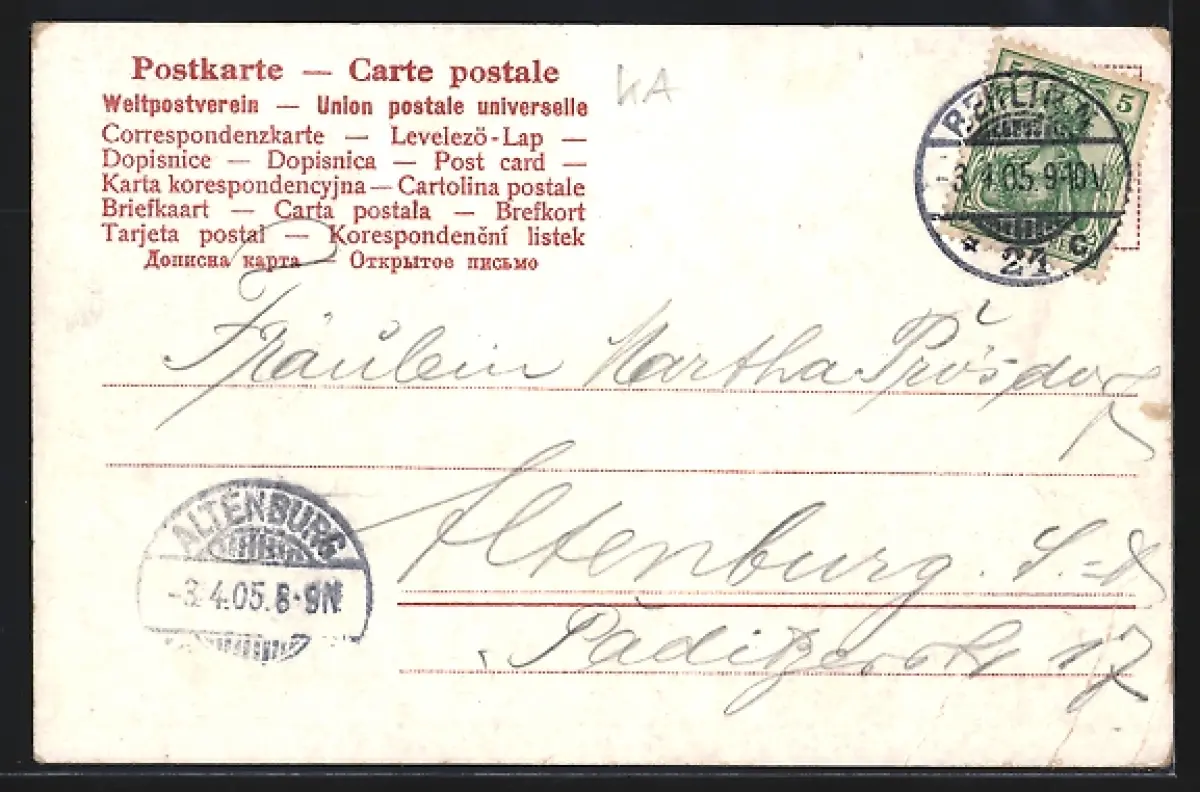 Postkarte — Carte postale
Weltpostverein — Union postale universelle
Correspondenzkarte — Levelező-Lap —
Dopisnice — Dopisnica — Post card —
Karta korespondencyjna — Cartolina postale
Briefkaart — Carta postala — Brefkort
Tarjeta postal — Korespondenční listek
Дописна карта — Открытое письмо
5
BERLIN
-3.4.05.9-10V.
* 21 C.
Fräulein Martha
Altenburg. S.-A
Paditzerstr. 17
ALTENBURG
-3.4.05.8-9N